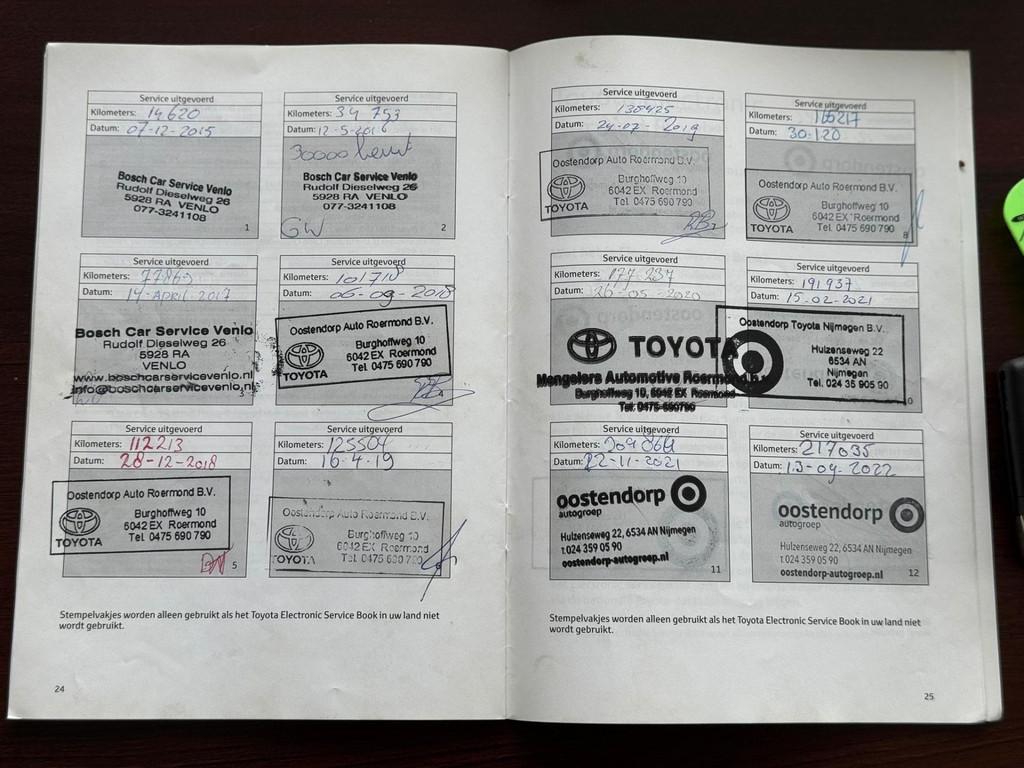 Service uitgevoerd
Kilometers: 14620
Datum: 07-12-2015
Bosch Car Service Venlo
Rudolf Dieselweg 26
5928 RA VENLO
077-3241108
1
Service uitgevoerd
Kilometers: 34 753
Datum: 12-5-2016
30000 beurt
Bosch Car Service Venlo
Rudolf Dieselweg 26
5928 RA VENLO
077-3241108
GW
2
Service uitgevoerd
Kilometers:
Datum: 14-APRIL 2017
Bosch Car Service Venlo
Rudolf Dieselweg 26
5928 RA
VENLO
www.boschcarservicevenlo.nl
info@boschcarservicevenlo.nl
3
Service uitgevoerd
Kilometers: 101718
Datum: 06-09-2018
Oostendorp Auto Roermond B.V.
Burghoffweg 10
6042 EX Roermond
Tel. 0475 690 790
TOYOTA
4
Service uitgevoerd
Kilometers: 112213
Datum: 28-12-2018
Oostendorp Auto Roermond B.V.
Burghoffweg 10
6042 EX Roermond
Tel. 0475 690 790
TOYOTA
5
Service uitgevoerd
Kilometers: 125504
Datum: 16-4-19
Oostendorp Auto Roermond B.V.
Burghoffweg 10
6042 EX Roermond
Tel. 0475 690 790
TOYOTA
Stempelvakjes worden alleen gebruikt als het Toyota Electronic Service Book in uw land niet
wordt gebruikt.
24
Service uitgevoerd
Kilometers: 138425
Datum: 24-07-2019
Oostendorp Auto Roermond B.V.
Burghoffweg 10
6042 EX Roermond
Tel. 0475 690 790
TOYOTA
Service uitgevoerd
Kilometers: 165217
Datum: 30-1-20
Oostendorp Auto Roermond B.V.
Burghoffweg 10
6042 EX Roermond
Tel. 0475 690 790
TOYOTA
8
Service uitgevoerd
Kilometers: 177-237
Datum: 26-05-2020
TOYOTA
Mengelers Automotive Roermond
Burghoffweg 10, 6042 EX Roermond
Tel: 0475-690790
Service uitgevoerd
Kilometers: 191937
Datum: 15-02-2021
Oostendorp Toyota Nijmegen B.V.
Hulzenseweg 22
6534 AN
Nijmegen
Tel. 024 35 905 90
Service uitgevoerd
Kilometers: 209864
Datum: 22-11-2021
oostendorp
autogroep
Hulzenseweg 22, 6534 AN Nijmegen
t.024 359 05 90
oostendorp-autogroep.nl
11
Service uitgevoerd
Kilometers: 217035
Datum: 13-09-2022
oostendorp
autogroep
Hulzenseweg 22, 6534 AN Nijmegen
t.024 359 05 90
oostendorp-autogroep.nl
12
Stempelvakjes worden alleen gebruikt als het Toyota Electronic Service Book in uw land niet
wordt gebruikt.
25